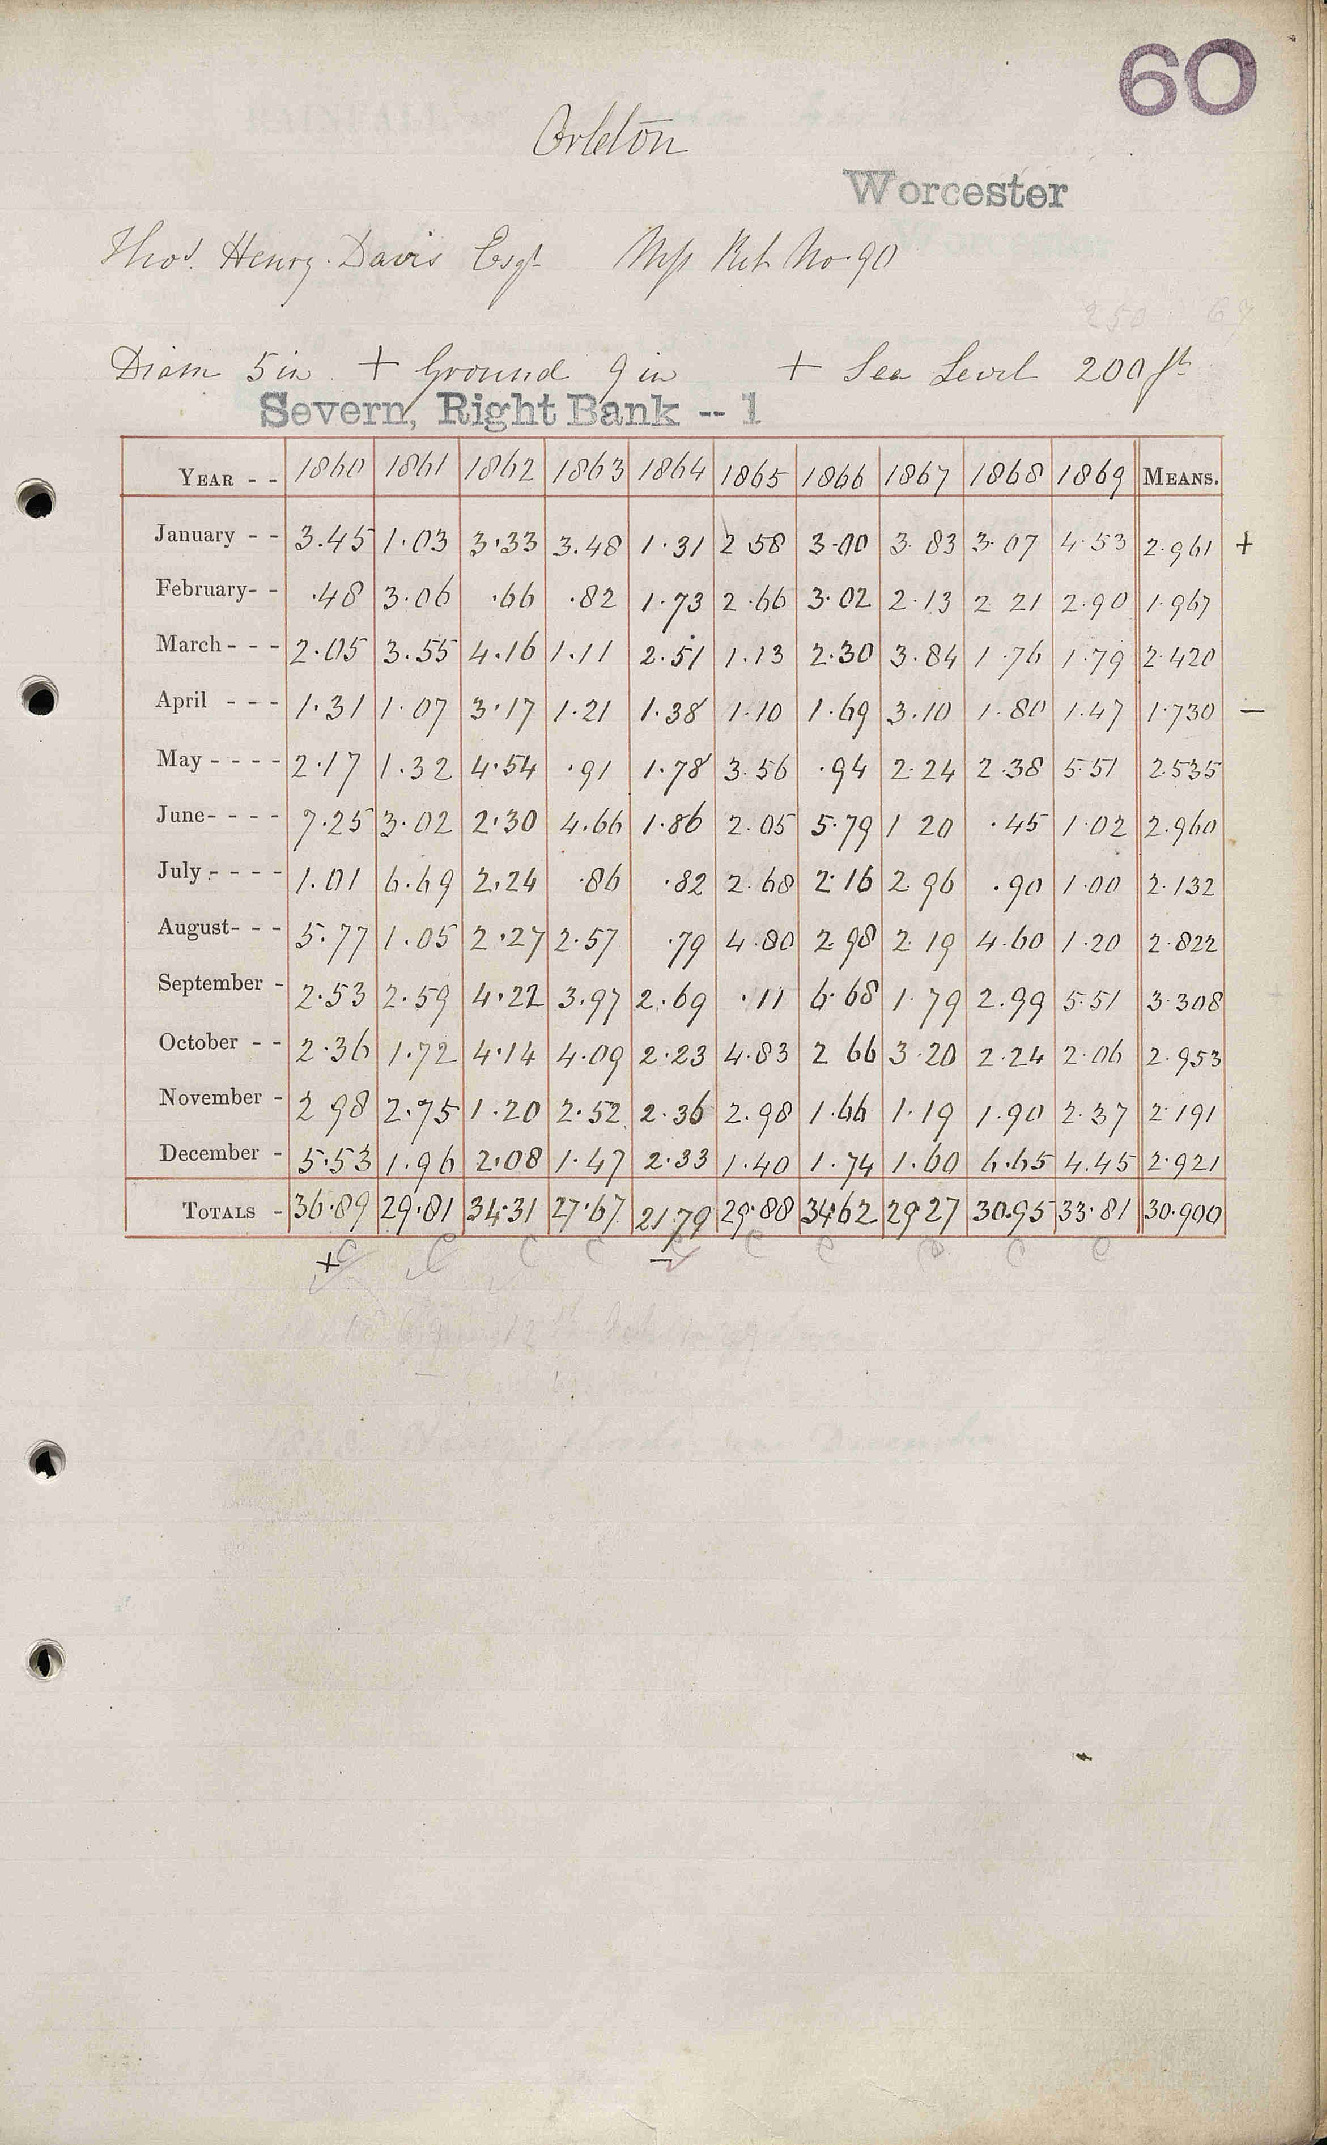 60
Orleton
Worcester
Thos. Henry. Davis Esqr No. 90
Diam 5 in + Ground 9 in + Sea Level 200 ft
Severn, Right Bank -- 1
YEAR - - 1860 1861 1862 1863 1864 1865 1866 1867 1868 1869 MEANS.
January - - 3.45 1.03 3.33 3.48 1.31 2 58 3.00 3.83 3.07 4.53 2.961 +
February- - .48 3.06 .66 .82 1.73 2.66 3.02 2.13 2 21 2.90 1.967
March - - - 2.05 3.55 4.16 1.11 2.51 1.13 2.30 3.84 1.76 1.79 2.420
April - - - 1.31 1.07 3.17 1.21 1.38 1.10 1.69 3.10 1.80 1.47 1.730 —
May - - - - 2.17 1.32 4.54 .91 1.78 3.56 .94 2.24 2.38 5.51 2.535
June- - - - 7.25 3.02 2.30 4.66 1.86 2.05 5.79 1 20 .45 1.02 2.960
July - - - - 1.01 6.69 2.24 .86 .82 2.68 2.16 2 96 .90 1.00 2.132
August- - - 5.77 1.05 2.27 2.57 .79 4.80 2.98 2.19 4.60 1.20 2.822
September - 2.53 2.59 4.22 3.97 2.69 .11 6.68 1.79 2.99 5.51 3.308
October - - 2.36 1.72 4.14 4.09 2.23 4.83 2 66 3.20 2.24 2.06 2.953
November - 2 98 2.75 1.20 2.52 2.36 2.98 1.66 1.19 1.90 2.37 2.191
December - 5.53 1.96 2.08 1.47 2.33 1.40 1.74 1.60 6.65 4.45 2.921
TOTALS - 36.89 29.81 34.31 27.67 21.79 29.88 34.62 29.27 30.95 33.81 30.900